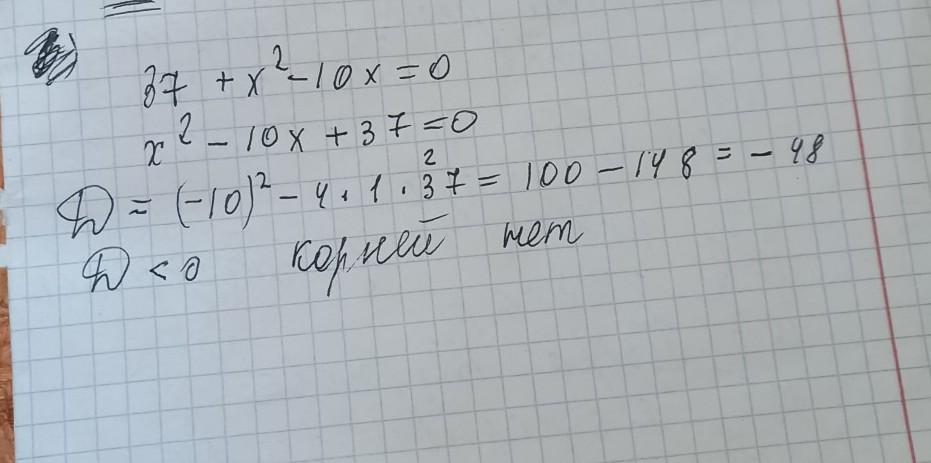 37 + x² - 10x = 0
x² - 10x + 37 = 0
2
D = (-10)² - 4 · 1 · 37 = 100 - 148 = - 48
D < 0 корней нет